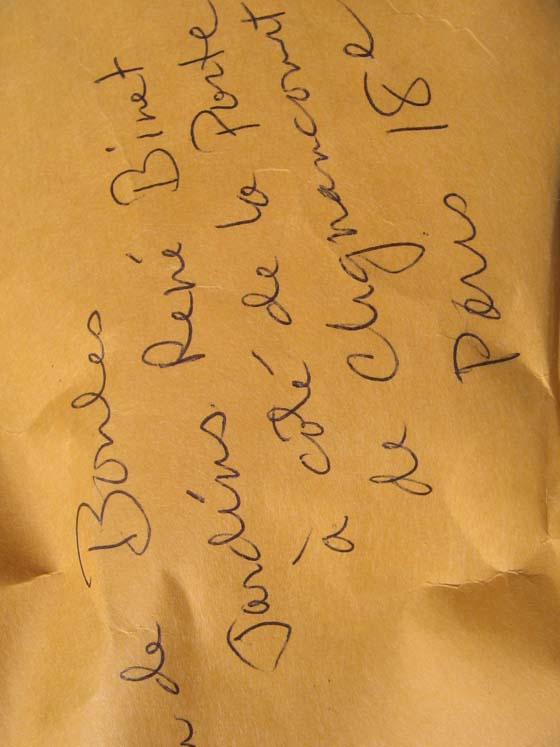 de Boules
Jardins René Binet
à côté de la Porte
de Clignancourt
Paris 18e